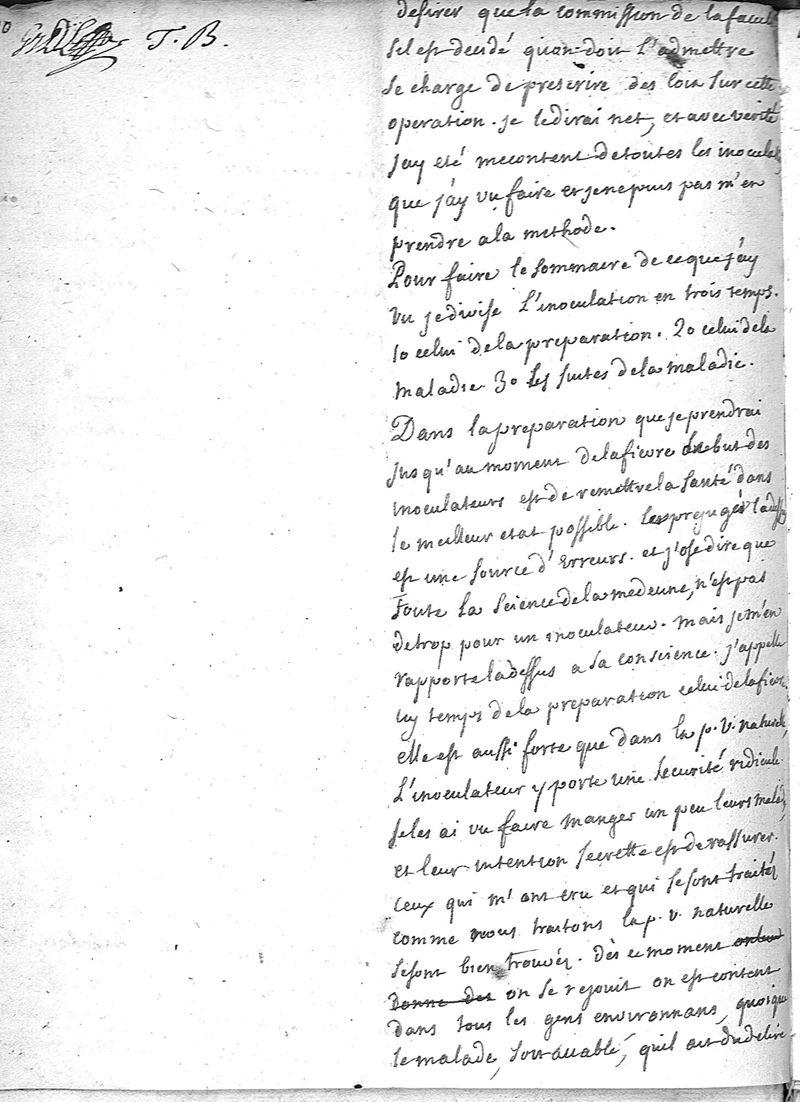 T. B.
desirer que la commission de la facul
sil est decidé quon doit l'admettre
se charge de prescrire des loix sur cette
operation. je le dirai net, et avec verité
jay eté mecontent de toutes les inocula
que j'ay vu faire et je ne puis pas m'en
prendre a la methode.
Pour faire le sommaire de ce que j'ay
vu je divise L'inoculation en trois temps.
1o celui de la preparation. 2o celui de la
maladie. 3o les suites de la maladie.
Dans la preparation que je prendrai
jusqu'au moment de la fievre le but des
inoculateurs est de remettre la santé dans
le meilleur etat possible. les prejugés la dessus
est une source d'Erreurs. et j'ose dire que
toute la science de la medecine, n'est pas
de trop pour un inoculateur. mais je m'en
rapporte la dessus a sa conscience. j'appelle
icy temps de la preparation celui de la fievre.
elle est aussi forte que dans la p. v. naturelle,
L'inoculateur y porte une securité ridicule.
je les ai vu faire manger un peu leurs malad
et leur intention secrette est de rassurer.
ceux qui m'ont cru et qui se sont traités
comme nous traitons la p. v. naturelle
se sont bien trouvés. dès ce moment
donne des on se rejouit on est content
dans tous les gens environnans, quoique
le malade, soit accablé, quil ait du delire